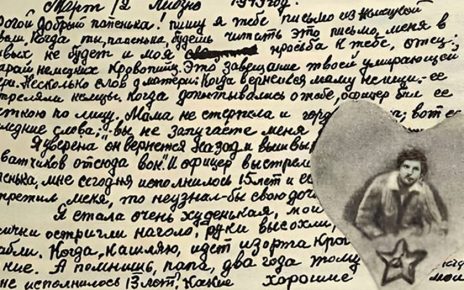 Март, 12, Лиозно, 1943 год.
Дорогой добрый папенька! пишу я тебе письмо из немецкой
воли. Когда ты, папенька, будешь читать это письмо, меня в
живых не будет и моя просьба к тебе, отец:
карай немецких кровопийц. Это завещание твоей умирающей
Несколько слов о матери. Когда вернешься маму не ищи. ее
стреляли немцы, когда допытывались о тебе, офицер бил ее
ткою по лицу, Мама не стерпела и
едние слова: "вы не запугаете меня
Я уверена он вернется назад и вышвы
ватчиков отсюда вон". И офицер выстрели
енька, мне сегодня исполнилось 15 лет и ес
ретил меня, то не узнал бы свою доч
Я стала очень худенькая, мои
остригли наголо, руки высохли,
абли. Когда, кашляю, идет из рта кро
кие. А помнишь, папа, два года тому
не исполнилось 13 лет. Какие хорошие мои